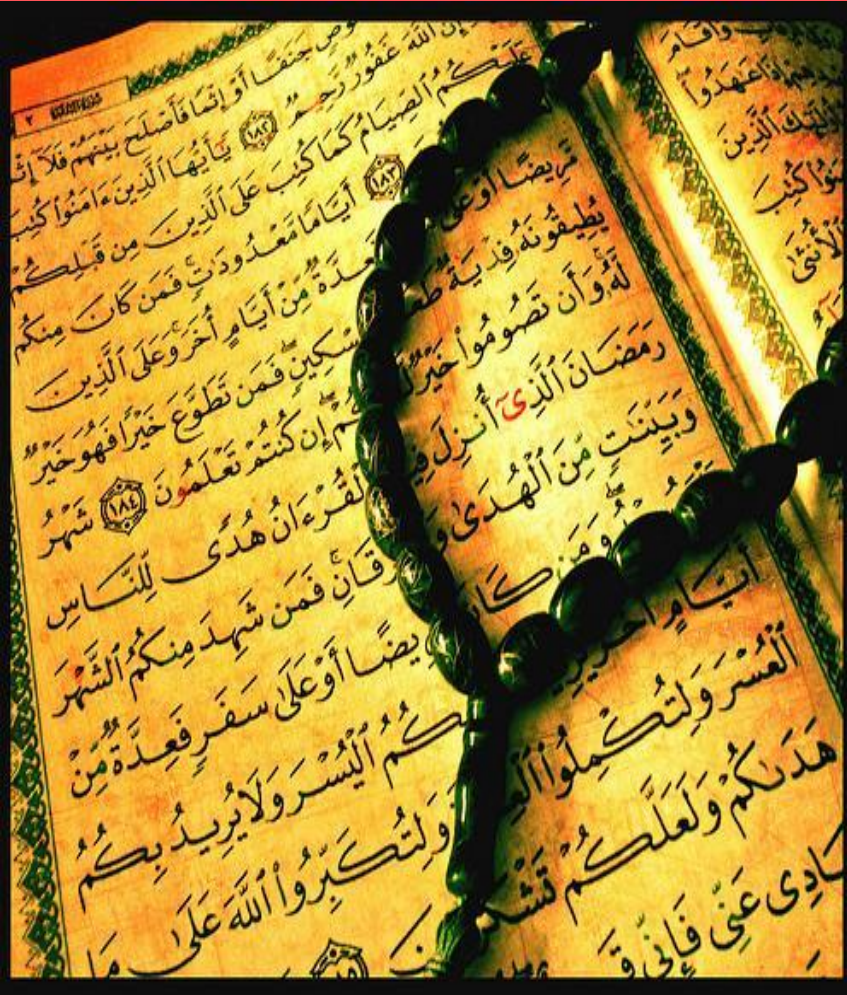 ٢
جَنَفًا أَوْ إِثْمًا فَأَصْلَحَ بَيْنَهُمْ فَلَآ
إِنَّ ٱللَّهَ غَفُورٌ رَّحِيمٌ ١٨٢ يَٰٓأَيُّهَا ٱلَّذِينَ ءَامَنُوا۟ كُتِبَ
عَلَيْكُمُ ٱلصِّيَامُ كَمَا كُتِبَ عَلَى ٱلَّذِينَ مِن قَبْلِكُمْ
١٨٣ أَيَّامًا مَّعْدُودَٰتٍ فَمَن كَانَ مِنكُم
مَّرِيضًا أَوْ فَعِدَّةٌ مِّنْ أَيَّامٍ أُخَرَ وَعَلَى ٱلَّذِينَ
يُطِيقُونَهُۥ فِدْيَةٌ مِسْكِينٍ فَمَن تَطَوَّعَ خَيْرًا فَهُوَ خَيْرٌ
لَّهُۥ وَأَن تَصُومُوا۟ خَيْرٌ لَّكُمْ إِن كُنتُمْ تَعْلَمُونَ ١٨٤ شَهْرُ
رَمَضَانَ ٱلَّذِىٓ أُنزِلَ فِيهِ ٱلْقُرْءَانُ هُدًى لِّلنَّاسِ
وَبَيِّنَٰتٍ مِّنَ ٱلْهُدَىٰ وَٱلْفُرْقَانِ فَمَن شَهِدَ مِنكُمُ ٱلشَّهْرَ
وَمَن كَانَ مَرِيضًا أَوْ عَلَىٰ سَفَرٍ فَعِدَّةٌ مِّنْ
أَيَّامٍ أُخَرَ بِكُمُ ٱلْيُسْرَ وَلَا يُرِيدُ بِكُمُ
ٱلْعُسْرَ وَلِتُكْمِلُوا۟ ٱلْعِدَّةَ وَلِتُكَبِّرُوا۟ ٱللَّهَ عَلَىٰ مَا
هَدَىٰكُمْ وَلَعَلَّكُمْ تَشْكُرُونَ
عَنِّى فَإِنِّى